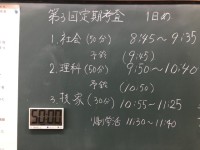 第3回定期考査 1日め
1. 社会(50分) 8:45〜9:35
予鈴 (9:45)
2. 理科(50分) 9:50〜10:40
予鈴 (10:50)
3. 技家(30分) 10:55〜11:25
帰り学活 11:30〜11:40
50:00